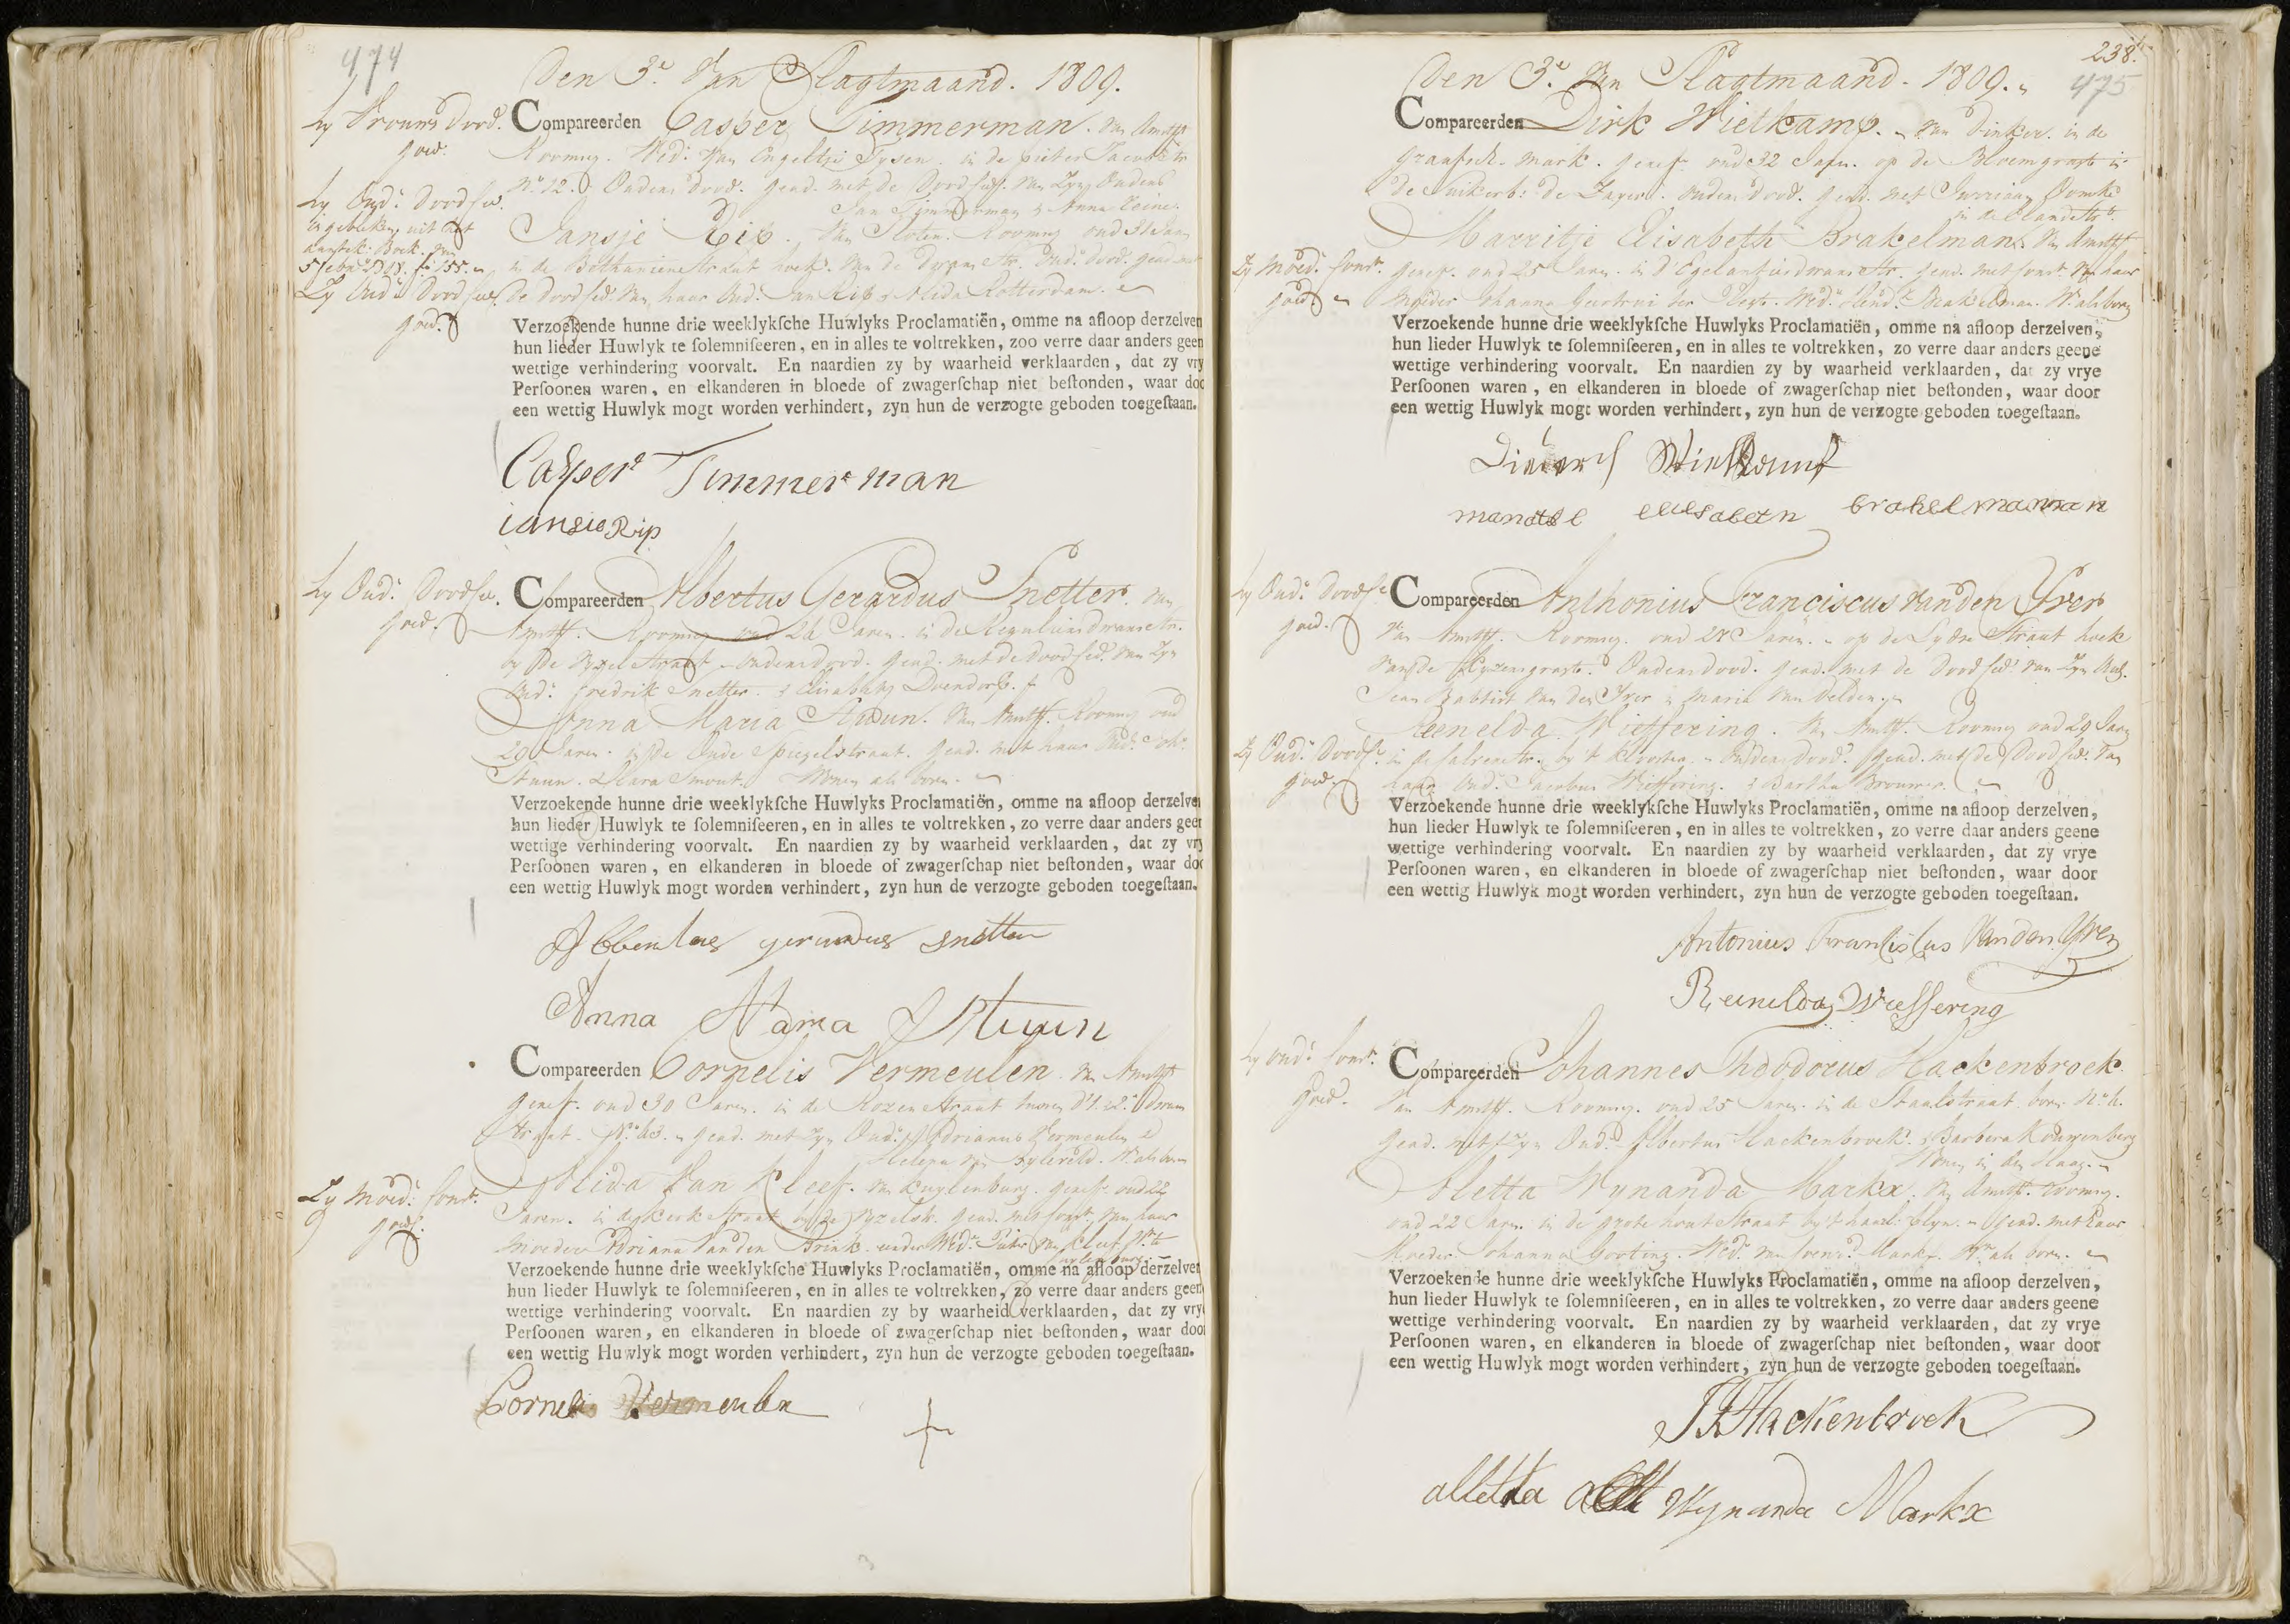 474
Den 3.e Van Slagtmaand. 1809.
Hy Vrouws dood.
goed.
Compareerden Casper Timmerman. Van Amst
Rooms. Wed.r Van Engeltje Tysen. in de pieter Jacobs str
N.o 12. Ouders dood. Gead. met de Doodced. Van Zyn Ouders
Jan Timmerman & Anna
Hy Oud.s Doodced.
is gebleken uit het
aantek: Boek. van
Jansje Rip. Van Sloten. Rooms oud Jaar
in de Bethanienstraat hoek Van de dwars str. Oud.s dood. gead met
Zy Oud.s Doodced.
goed.
de doodced. Van haar Oud.s Jan Rip & Alida Rotterdam.
Verzoekende hunne drie weeklykſche Huwlyks Proclamatiën, omme na afloop derzelven
hun lieder Huwlyk te ſolemniſeeren, en in alles te voltrekken, zoo verre daar anders geen
wettige verhindering voorvalt. En naardien zy by waarheid verklaarden, dat zy vry
Perſoonen waren, en elkanderen in bloede of zwagerſchap niet beſtonden, waar doo
een wettig Huwlyk mogt worden verhindert, zyn hun de verzogte geboden toegeſtaan.
Casper Timmerman
iansie Rip
Hy Oud.s Doodced.
goed.
Compareerden Albertus Gerardus Snetter. Van
Amst. Rooms oud 26 Jaren. in de Reguliersdwarsstr.
by de Vyzel Straat. Ouders dood. Gead. met de doodced. Van Zyn
Oud.s Fredrik Snetter. & Elisabeth Doendorp.
Anna Maria Stuun. Van Amst. Rooms oud
20 Jaren. in de Oude Spiegelstraat. Gead. met haar Oud.s Joh.
Stuun. & Clara Smout. Wonen als boven.
Verzoekende hunne drie weeklykſche Huwlyks Proclamatiën, omme na afloop derzelven
hun lieder Huwlyk te ſolemniſeeren, en in alles te voltrekken, zo verre daar anders geen
wettige verhindering voorvalt. En naardien zy by waarheid verklaarden, dat zy vry
Perſoonen waren, en elkanderen in bloede of zwagerſchap niet beſtonden, waar doo
een wettig Huwlyk mogt worden verhindert, zyn hun de verzogte geboden toegeſtaan.
Albertus gerardus snetter
Anna Maria Stuun
Compareerden Cornelis Vermeulen. Van Amst
geref. oud 30 Jaren. in de Rozen Straat tussen d'1. & 2.e dwars
straat. N.o 63. Gead. met Zyn Oud.s Adrianus Vermeulen &
Helena Van Byleveld. W. als boven
Zy Moed.s Const.
goed.
Alida Van Kleef. Van Kuylenburg. geref. oud 22
Jaren. in de kerk Straat by de Vyzelstr. Gead. met const. Van haar
Moeder Adriana Van den Brink. eerder Wed.e Pieter Van Kleef W.te
Verzoekende hunne drie weeklykſche Huwlyks Proclamatiën, omme na afloop derzelven
hun lieder Huwlyk te ſolemniſeeren, en in alles te voltrekken, zo verre daar anders geen
wettige verhindering voorvalt. En naardien zy by waarheid verklaarden, dat zy vry
Perſoonen waren, en elkanderen in bloede of zwagerſchap niet beſtonden, waar doo
een wettig Huwlyk mogt worden verhindert, zyn hun de verzogte geboden toegeſtaan.
Cornelis Vermeulen
238.
475
Den 3.e Van Slagtmaand. 1809.
Compareerden Dirk Wielkamp. Van Dinker. in de
Graafsch. Mark. geref. oud 32 Jaren. op de Bloemgragt in
de Suikerb: de Jager. Ouders dood. Gead. met Jurriaan
in de Elandsstr.
Marritje Elisabeth Brakelman. Van Amst
Zy Moed.s Const.
goed
geref. oud 25 Jaren. in d'Egelantiersdwars str. Gead. met const. Van haar
Moeder Johanna Geertrui ter Wed.e Hend.k Brakelman. W. als boven
Verzoekende hunne drie weeklykſche Huwlyks Proclamatiën, omme na afloop derzelven,
hun lieder Huwlyk te ſolemniſeeren, en in alles te voltrekken, zo verre daar anders geene
wettige verhindering voorvalt. En naardien zy by waarheid verklaarden, dat zy vrye
Perſoonen waren, en elkanderen in bloede of zwagerſchap niet beſtonden, waar door
een wettig Huwlyk mogt worden verhindert, zyn hun de verzogte geboden toegeſtaan.
Diederich Wielkamp
elisabetn brakelmannan
Hy Oud.s Doodc.
goed.
Compareerden Anthonius Franciscus Van den Yver
Van Amst. Rooms. oud 27 Jaren. op de Lydse Straat hoek
Van de Keyzersgragt. Ouders dood. Gead. met de Doodced. Van Zyn Oud.
Jean Baptist Van den Yver & Maria Van Velden.
Reenelda Wieffering. Van Amst. Rooms oud 29 Jaren
Zy Oud.s Doodc.
goed
in de Calverstr. by 't klooster. Ouders dood. Gead. met de Doodced. Van
haar Oud.s Jacobus Wieffering. & Bartha Brouwer.
Verzoekende hunne drie weeklykſche Huwlyks Proclamatiën, omme na afloop derzelven,
hun lieder Huwlyk te ſolemniſeeren, en in alles te voltrekken, zo verre daar anders geene
wettige verhindering voorvalt. En naardien zy by waarheid verklaarden, dat zy vrye
Perſoonen waren, en elkanderen in bloede of zwagerſchap niet beſtonden, waar door
een wettig Huwlyk mogt worden verhindert, zyn hun de verzogte geboden toegeſtaan.
Antonius Franciscus Van den Yver
Reinelda Wieffering
Hy Oud.s Const.
Goed.
Compareerden Johannes Theodorus Hackenbroek.
Van Amst. Rooms. oud 25 Jaren. in de Staalstraat boven N.o 4.
Gead. met Zyn Oud.s Albertus Hackenbroek. & Barbera Kouwenberg
Wonen in den Haag.
Aletta Wynanda Markx. Van Amst. Rooms.
oud 22 Jaren. in de grote hout Straat by 't plyn. Gead. met haar
Moeder Johanna Gorting. Wed.e Van Markx. W. als boven.
Verzoekende hunne drie weeklykſche Huwlyks Proclamatiën, omme na afloop derzelven,
hun lieder Huwlyk te ſolemniſeeren, en in alles te voltrekken, zo verre daar anders geene
wettige verhindering voorvalt. En naardien zy by waarheid verklaarden, dat zy vrye
Perſoonen waren, en elkanderen in bloede of zwagerſchap niet beſtonden, waar door
een wettig Huwlyk mogt worden verhindert, zyn hun de verzogte geboden toegeſtaan.
J T Hackenbroek
alletta Wynanda Markx